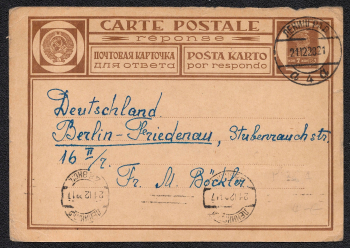 CARTE POSTALE
réponse
ПОЧТОВАЯ КАРТОЧКА
для ответа
POŜTA KARTO
por respondo
Deutschland.
Berlin-Friedenau, Stubenrauchstr.
16 II/r.
Fr. M. Böckler.